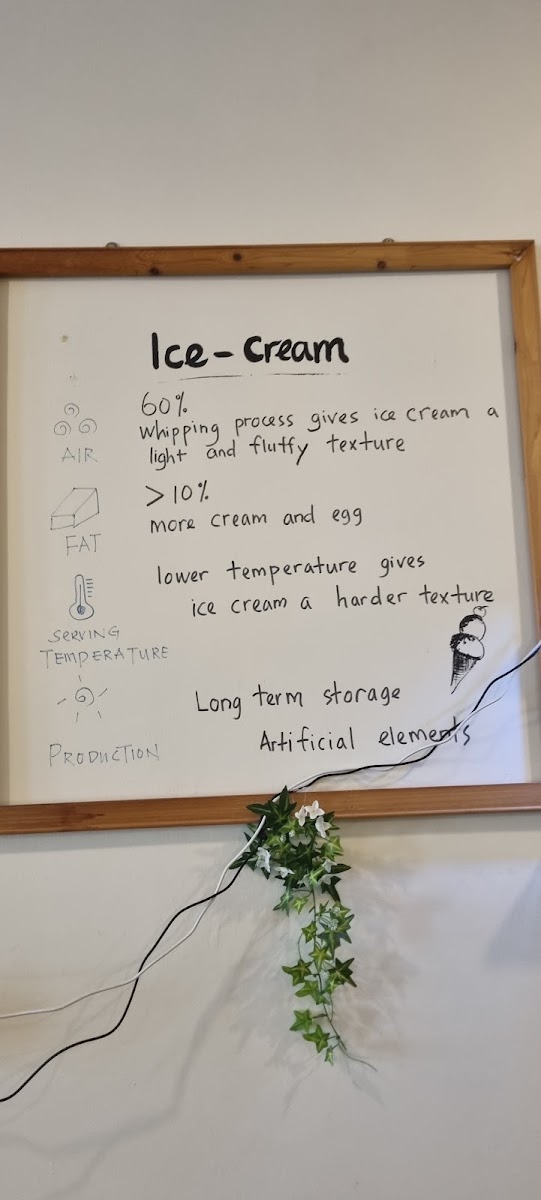 Ice-cream
60%
Whipping process gives ice cream a
light and fluffy texture
AIR
>10%
more cream and egg
FAT
lower temperature gives
ice cream a harder texture
SERVING
TEMPERATURE
Long term storage
Artificial elements
PRODUCTION